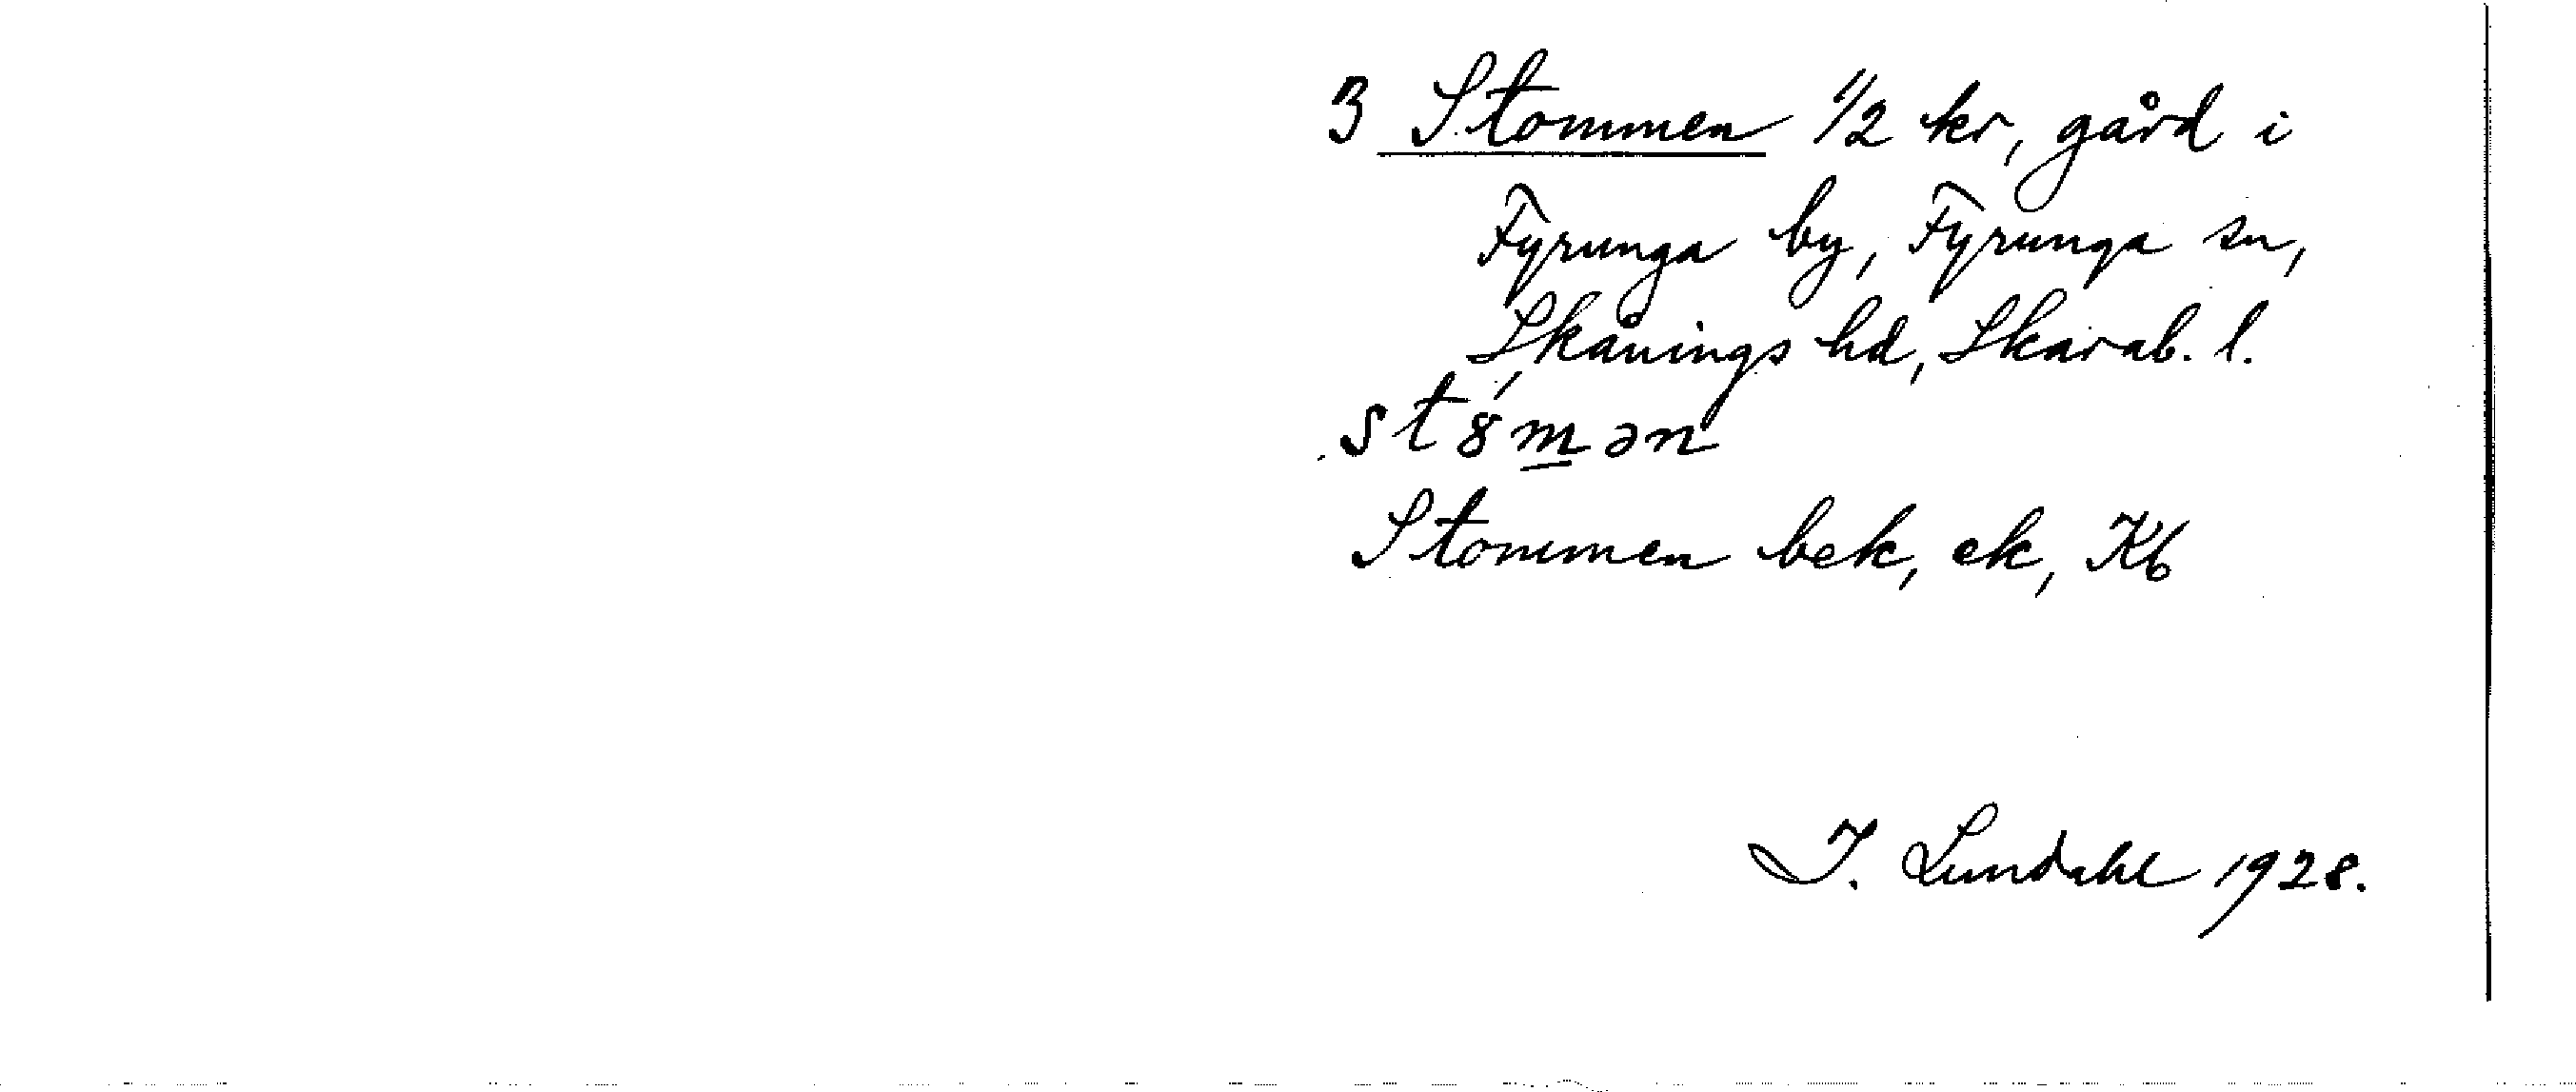 3 Stommen 1/2 kr, gård i
Fyrunga by, Fyrunga sn,
Skånings hd, Skarab. l.
st8́m̲ən
Stommen bek, ek, Kb
I. Lundahl 1928.